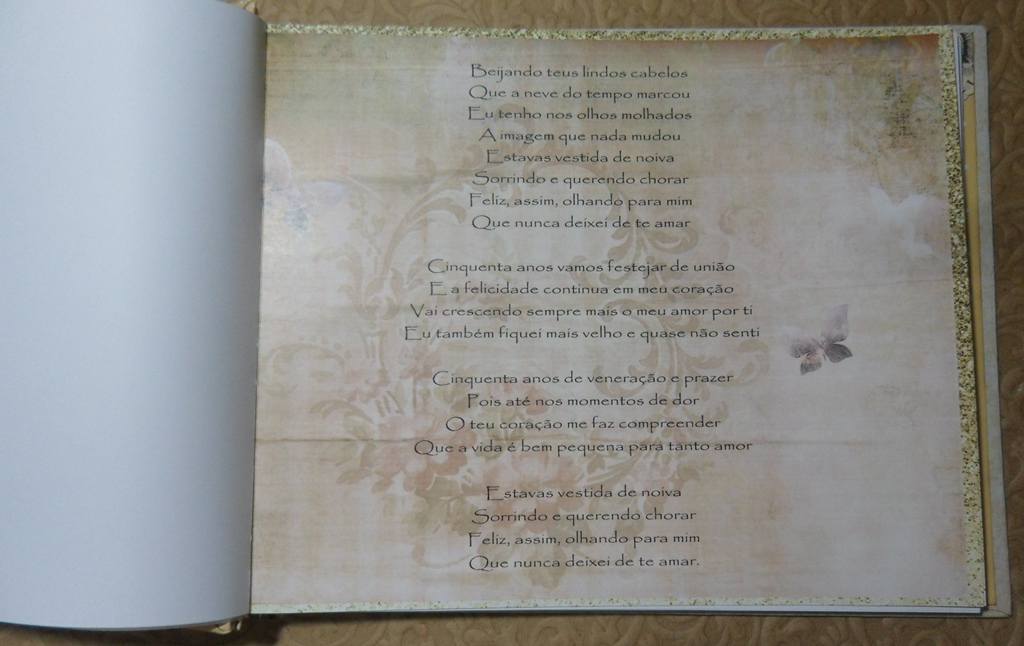 Beijando teus lindos cabelos
Que a neve do tempo marcou
Eu tenho nos olhos molhados
A imagem que nada mudou
Estavas vestida de noiva
Sorrindo e querendo chorar
Feliz, assim, olhando para mim
Que nunca deixei de te amar
Cinquenta anos vamos festejar de união
E a felicidade continua em meu coração
Vai crescendo sempre mais o meu amor por ti
Eu também fiquei mais velho e quase não senti
Cinquenta anos de veneração e prazer
Pois até nos momentos de dor
O teu coração me faz compreender
Que a vida é bem pequena para tanto amor
Estavas vestida de noiva
Sorrindo e querendo chorar
Feliz, assim, olhando para mim
Que nunca deixei de te amar.